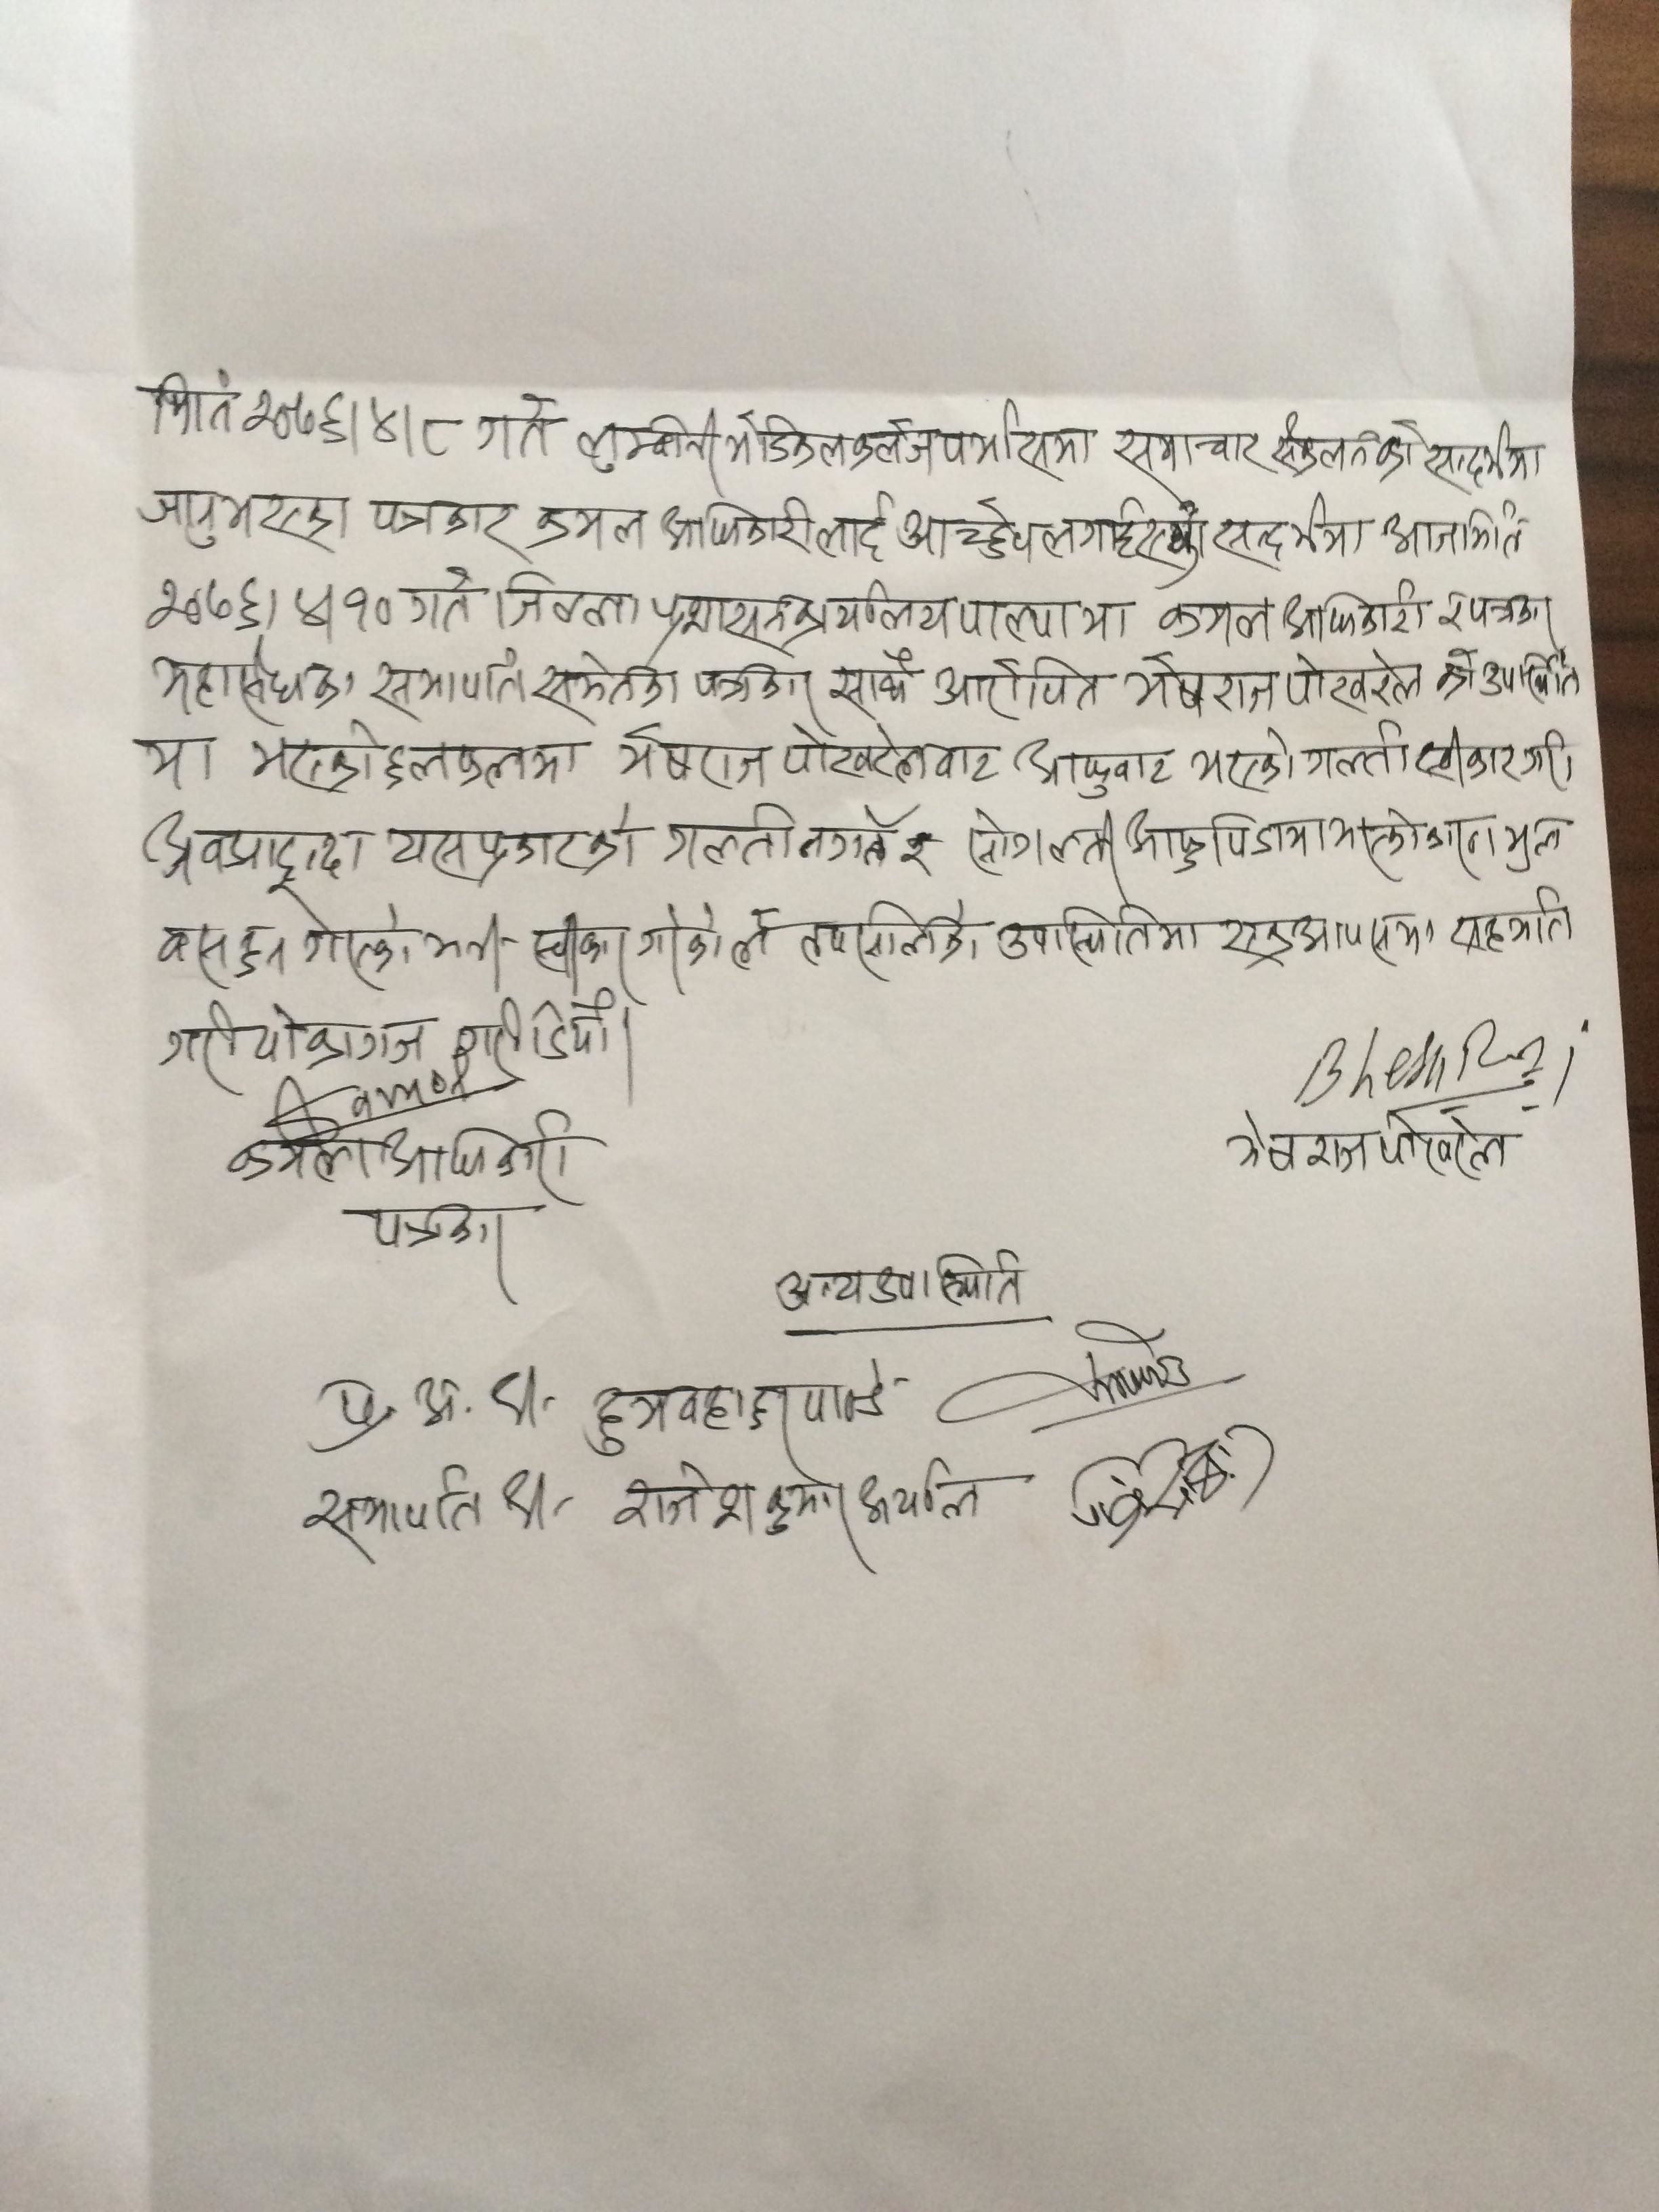 मिति २०७६।४।८ गते लुम्बिनी मेडिकल कलेज प्रभासमा समाचार संकलनको सन्दर्भमा
जानुभएका पत्रकार कमल अधिकारीलाई आरोप लगाईएको सन्दर्भमा आज मिति
२०७६।४।१० गते जिल्ला प्रशासन कार्यालय पाल्पामा कमल अधिकारी र पत्रकार
महासंघका सभापति समेतका पत्रकार साथै आरोपित भेषराज पोखरेल को उपस्थिति
मा भएको छलफलमा भेषराज पोखरेलबाट आफुबाट भएको गल्ती स्वीकार गरी
अब आइन्दा यस प्रकारको गल्ती नगर्ने र सो गल्ती आफु पिडामा भएको कारण भुल
बस हुन गएको भनी स्वीकार गरेकोले तपसिलको उपस्थितिमा एक आपसमा सहमति
गरी यो कागज गरी दियौं।
Kamal
कमल अधिकारी
पत्रकार
Bheshraj
भेषराज पोखरेल
अन्य उपस्थिति
प्र. अ. श्री हुमबहादुर पाण्डे
सभापति श्री राजेश कुमार अर्याल